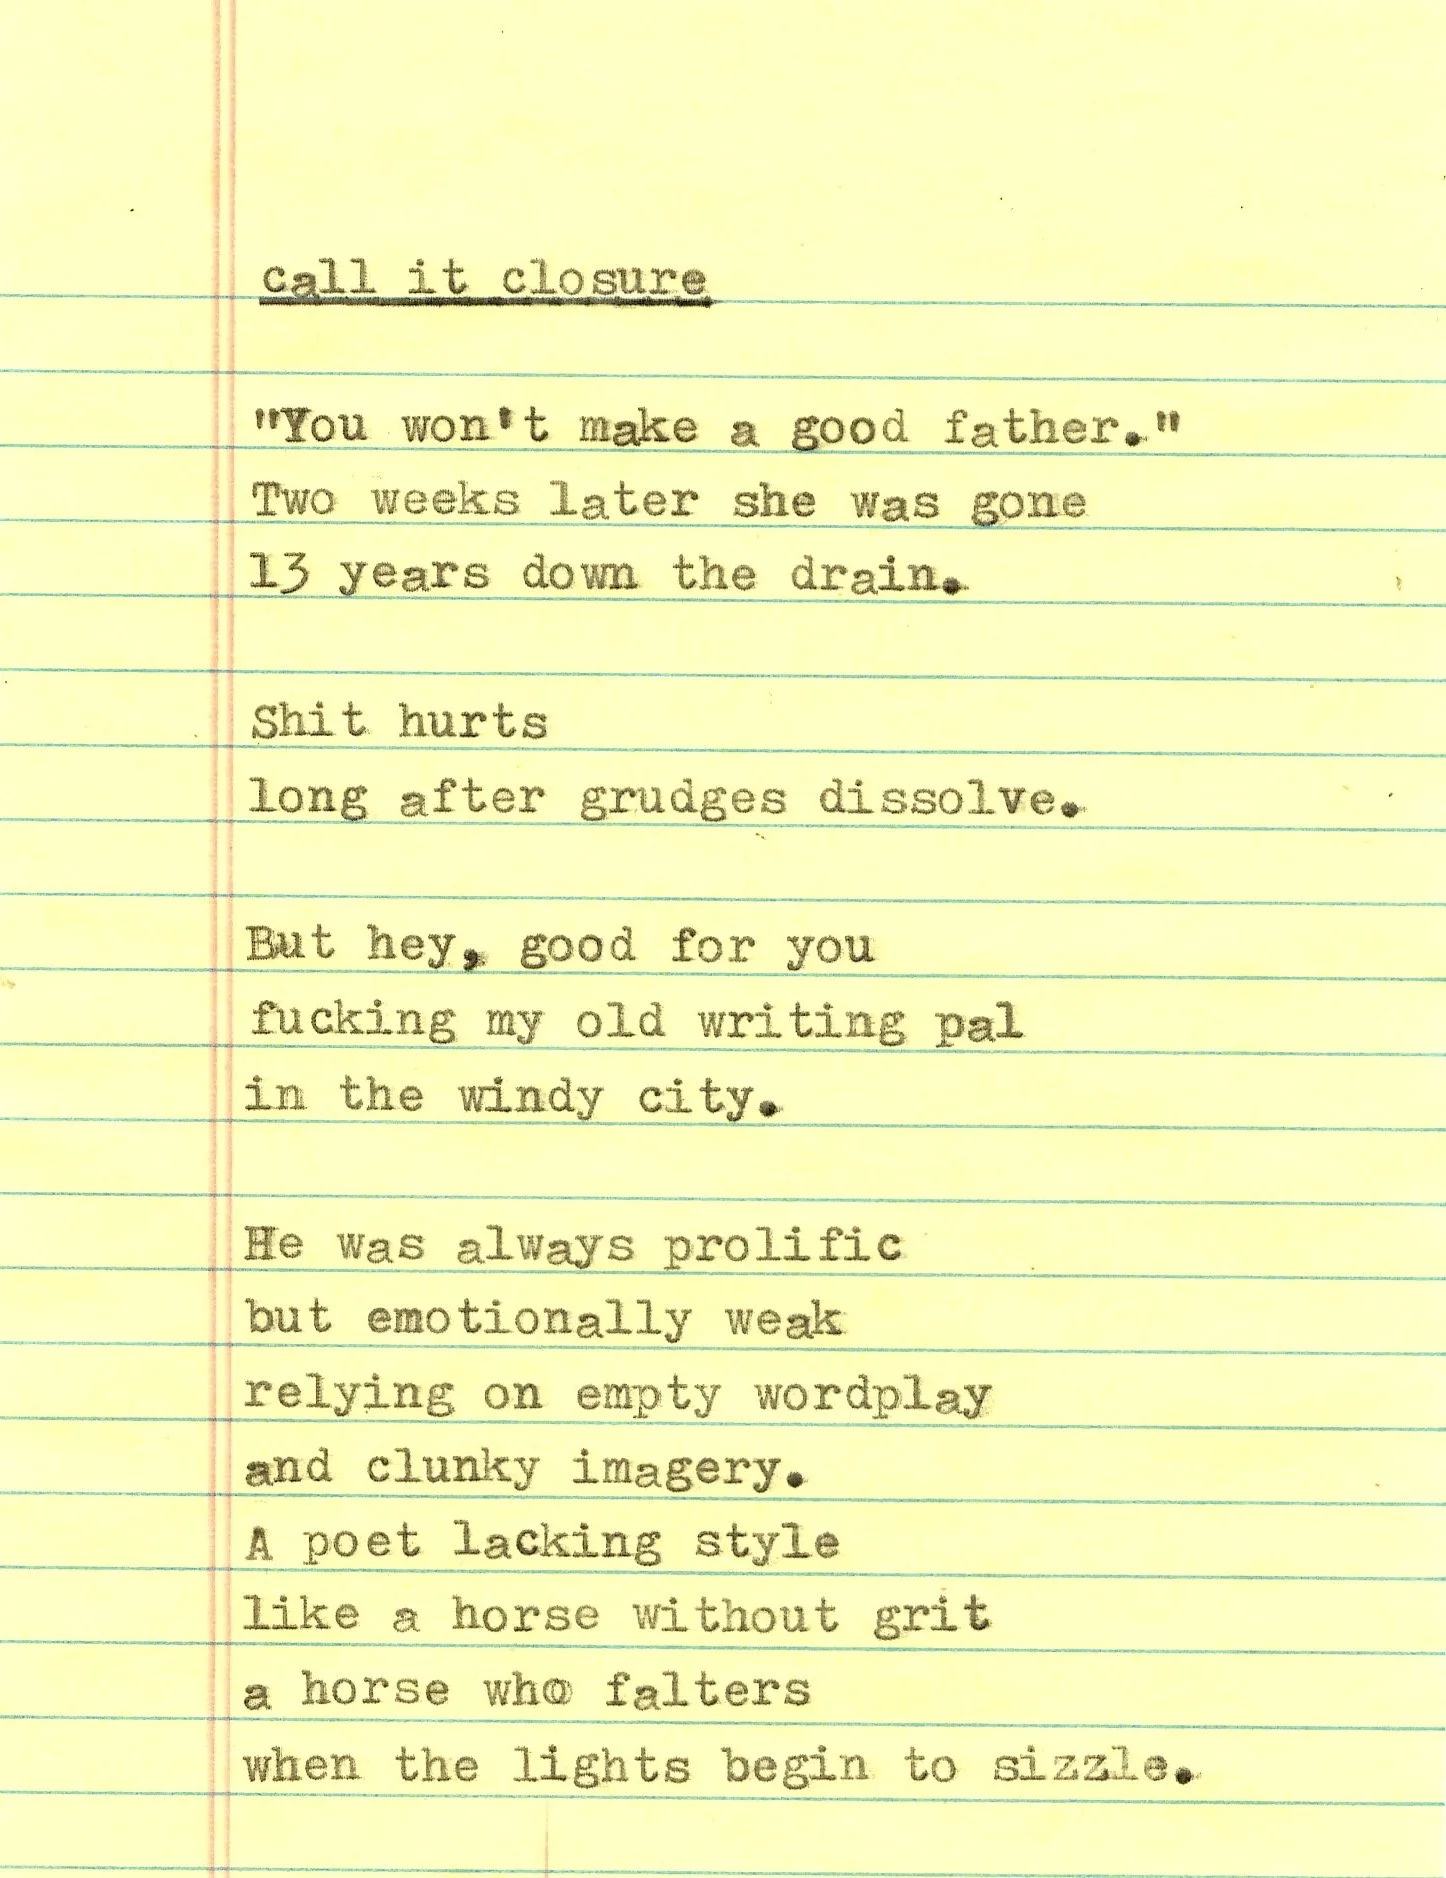 call it closure
"You won't make a good father."
Two weeks later she was gone
13 years down the drain.
Shit hurts
long after grudges dissolve.
But hey, good for you
fucking my old writing pal
in the windy city.
He was always prolific
but emotionally weak
relying on empty wordplay
and clunky imagery.
A poet lacking style
like a horse without grit
a horse who falters
when the lights begin to sizzle.